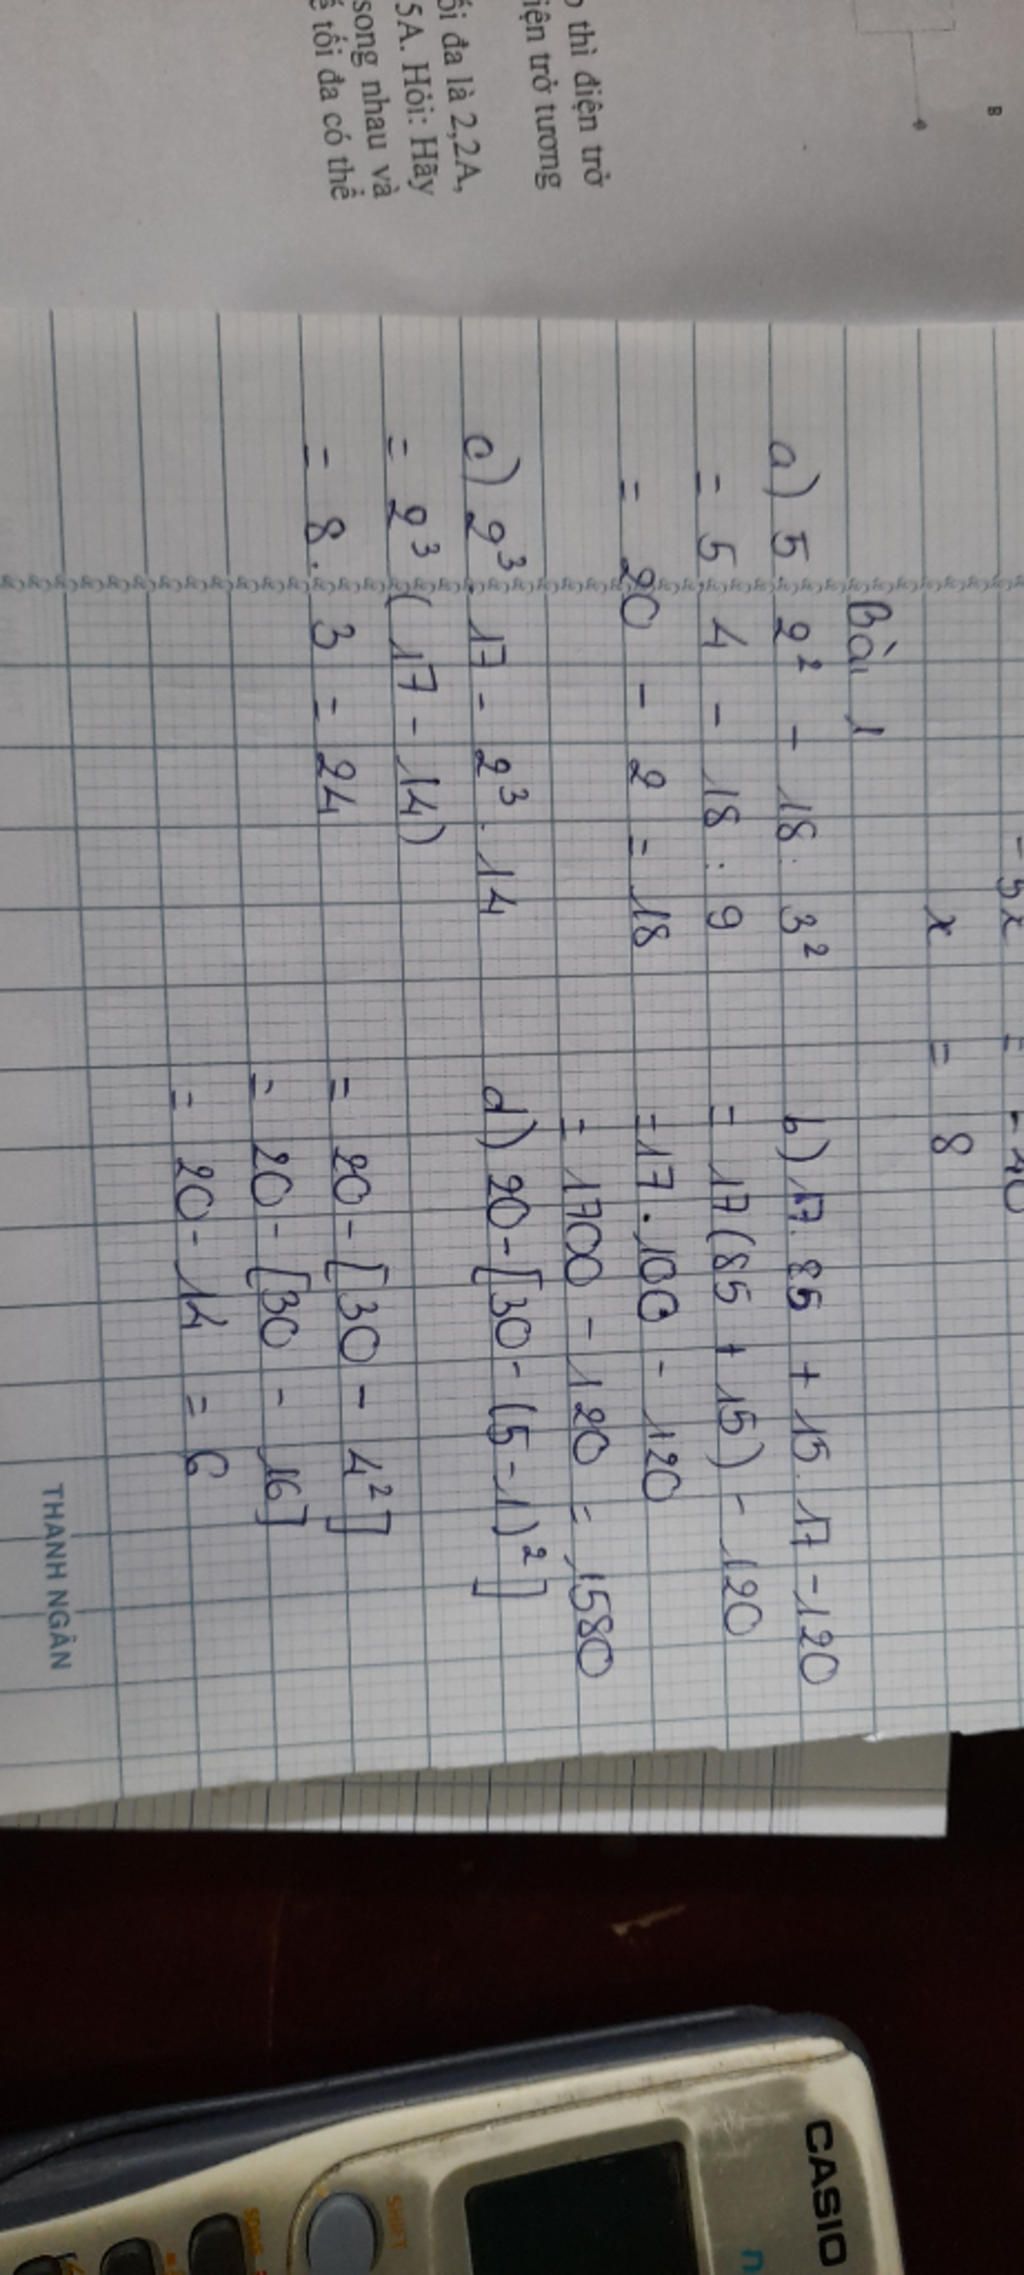 B
thì điện trở
iện trở tương
ối đa là 2,2A,
5A. Hỏi: Hãy
song nhau và
tối đa có thể
-5x = -40
x = 8
Bài 1
a) 5. 2² - 18: 3²
= 5. 4 - 18 : 9
= 20 - 2 = 18
b) 17. 85 + 15. 17 - 120
= 17 (85 + 15) - 120
= 17. 100 - 120
= 1700 - 120 = 1580
c) 2³. 17 - 2³. 14
= 2³ (17 - 14)
= 8. 3 = 24
d) 20 - [30 - (5 - 1)²]
= 20 - [30 - 4²]
= 20 - [30 - 16]
= 20 - 14 = 6
THANH NGÂN
CASIO
SHIFT